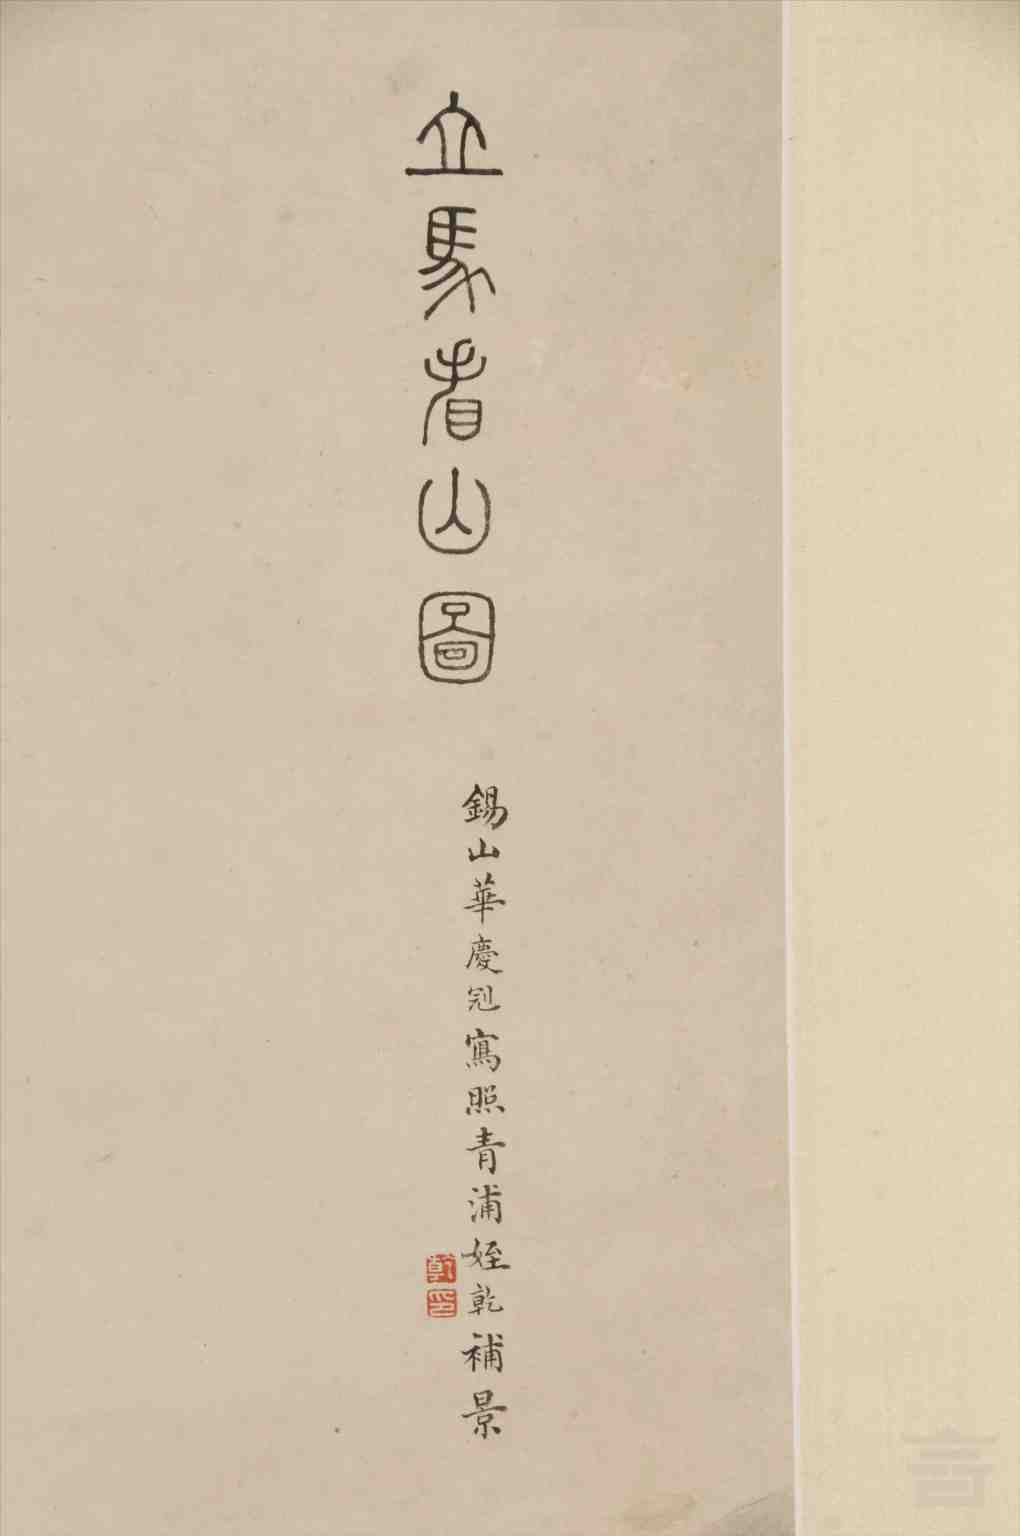 立馬看山圖
錫山華慶冠寫照青浦姪乾補景
乾印